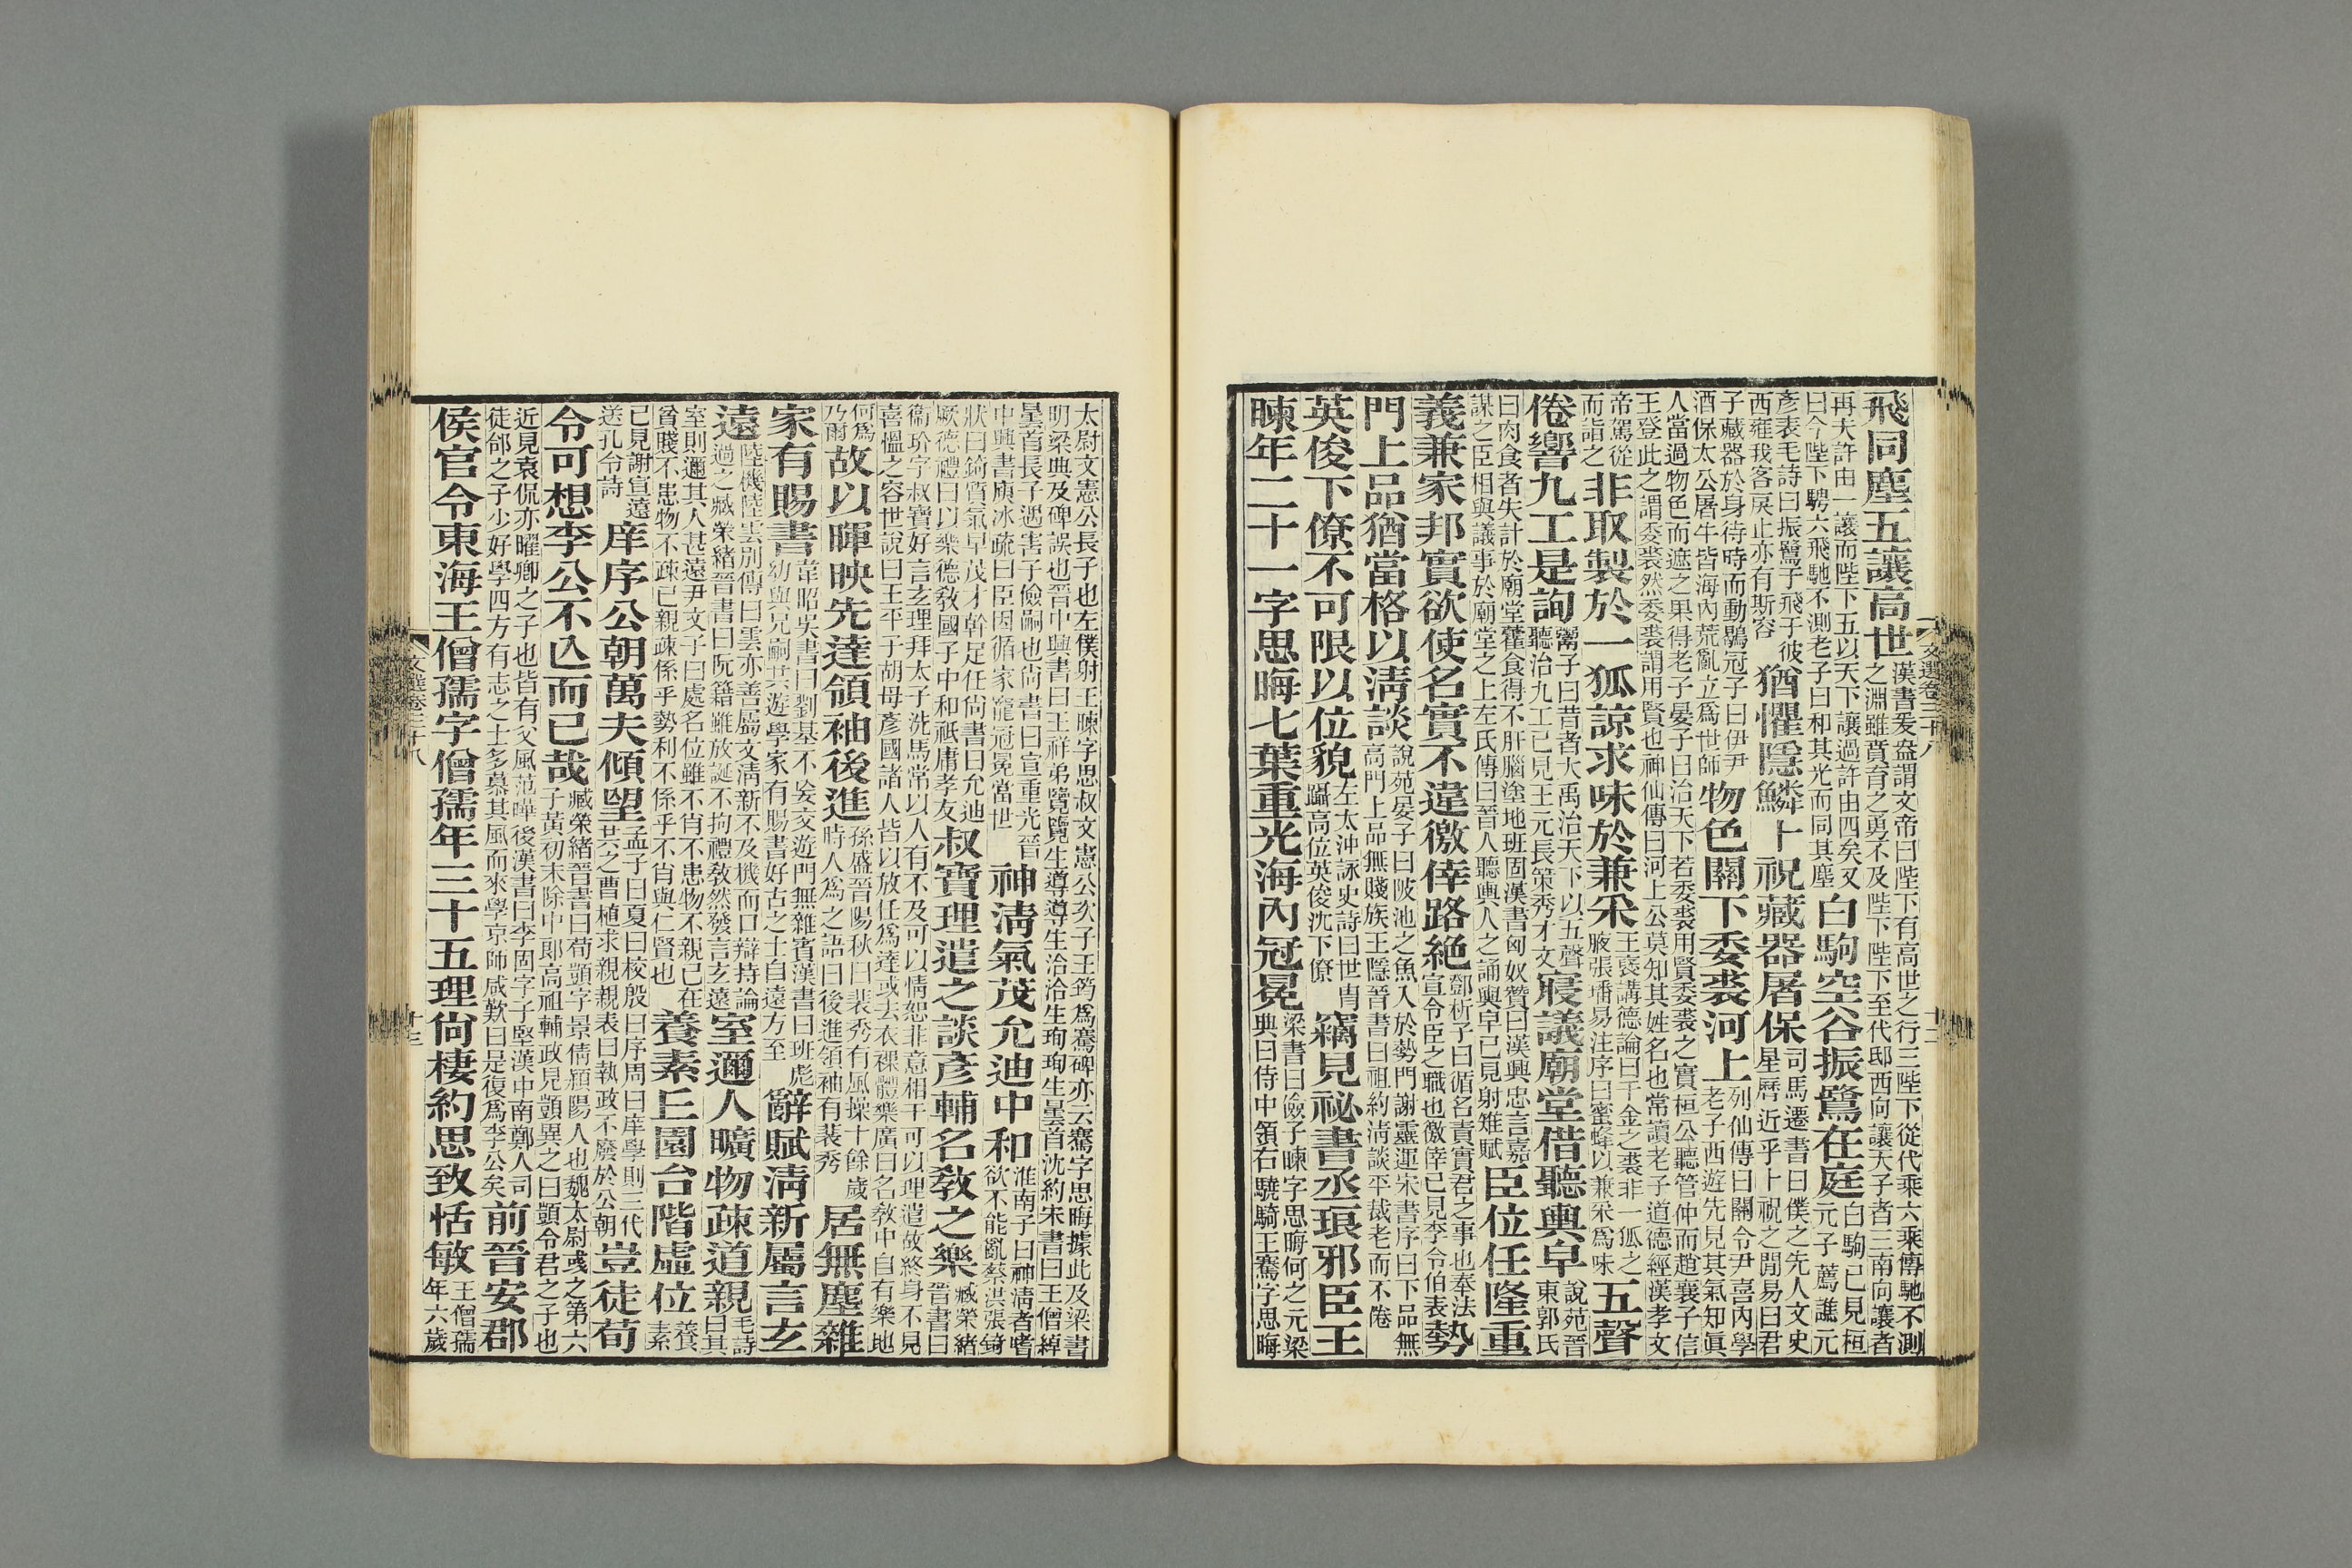 飛同塵五讓高世漢書爰盎謂文帝曰陛下有高世之行三陛下從代乘六乘傳馳不測之淵雖賁育之勇不及陛下陛下至代邸西向讓天子者三南向讓者
再夫許由一讓而陛下五以天下讓過許由四矣又曰今陛下騁六飛馳不測老子曰和其光而同其塵白駒空谷振鷺在庭白駒已見桓元子薦譙元
彥表毛詩曰振鷺于飛于彼西雍我客戾止亦有斯容猶懼隱鱗卜祝藏器屠保司馬遷書曰僕之先人文史星曆近乎卜祝之間易曰君
子藏器於身待時而動鶡冠子曰伊尹酒保太公屠牛皆海內荒亂立爲世師物色關下委裘河上列仙傳曰關令尹喜內學老子西遊先見其氣知眞
人當過物色而遮之果得老子晏子曰治天下若委裘用賢委裘之實桓公聽管仲而趙襄子信王登此之謂委裘然委裘謂用賢也神仙傳曰河上公莫知其姓名也常讀老子道德經漢孝文
帝駕從而詣之非取製於一狐諒求味於兼采王襃講德論曰千金之裘非一狐之腋張璠易注序曰蜜蜂以兼采爲味五聲
倦響九工是詢鬻子曰昔者大禹治天下以五聲聽治九工已見王元長策秀才文寢議廟堂借聽輿皁說苑晉東郭氏
曰肉食者失計於廟堂藿食得不肝腦塗地班固漢書匈奴贊曰漢興忠言嘉謀之臣相與議事於廟堂之上左氏傳曰晉人聽輿人之誦輿皁已見射雉賦臣位任隆重
義兼家邦實欲使名實不違徼倖路絕鄧析子曰循名責實君之事也奉法宣令臣之職也徼倖已見李令伯表勢
門上品猶當格以清談說苑晏子曰陂池之魚入於勢門謝靈運宋書序曰下品無高門上品無賤族王隱晉書曰祖約清談平裁老而不倦
英俊下僚不可限以位貌左太沖詠史詩曰世胄躡高位英俊沈下僚竊見祕書丞琅邪臣王
暕年二十一字思晦七葉重光海內冠冕梁書曰儉子暕字思晦何之元梁典曰侍中領右驍騎王騫字思晦
太尉文憲公長子也左僕射王暕字思叔文憲公次子王筠爲騫碑亦云騫字思晦據此及梁書明梁典及碑誤也晉中興書曰王祥弟覽覽生導導生洽洽生珣珣生曇首沈約宋書曰王僧綽
曇首長子遇害子儉嗣也尚書曰宣重光晉中興書庾冰疏曰臣因循家寵冠冕當世神清氣茂允迪中和淮南子曰神清者嗜欲不能亂蔡洪張錡
狀曰錡質氣早茂才幹足任尚書曰允迪厥德禮曰以樂德教國子中和祗庸孝友叔寶理遣之談彥輔名教之樂臧榮緒晉書曰
衞玠字叔寶好言玄理拜太子洗馬常以人有不及可以情恕非意相干可以理遣故終身不見喜慍之容世說曰王平子胡母彥國諸人皆以放任爲達或去衣裸體樂廣曰名教中自有樂地
何爲乃爾故以暉映先達領袖後進孫盛晉陽秋曰裴秀有風操十餘歲時人爲之語曰後進領袖有裴秀居無塵雜
家有賜書韋昭吳書曰劉基不妄交遊門無雜賓漢書曰班彪幼與兄嗣共遊學家有賜書好古之士自遠方至辭賦清新屬言玄
遠陸機陸雲別傳曰雲亦善屬文清新不及機而口辯持論過之臧榮緒晉書曰阮籍雖放誕不拘禮教然發言玄遠室邇人曠物疎道親毛詩曰其
室則邇其人甚遠尹文子曰處名位雖不肖不患物不親己在貧賤不患物不疎己親疎係乎勢利不係乎不肖與仁賢也養素丘園台階虛位養素
已見謝宣遠送孔令詩庠序公朝萬夫傾望孟子曰夏曰校殷曰序周曰庠學則三代共之曹植求親親表曰執政不廢於公朝豈徒荀
令可想李公不亾而已哉臧榮緒晉書曰荀顗字景倩潁陽人也魏太尉彧之第六子黃初末除中郎高祖輔政見顗異之曰顗令君之子也
近見袁侃亦曜卿之子也皆有父風范曄後漢書曰李固字子堅漢中南鄭人司徒郃之子少好學四方有志之士多慕其風而來學京師咸歎曰是復爲李公矣前晉安郡
侯官令東海王僧孺字僧孺年三十五理尙棲約思致恬敏王僧孺年六歲
文選卷三十八
十二
文選卷三十八
十三